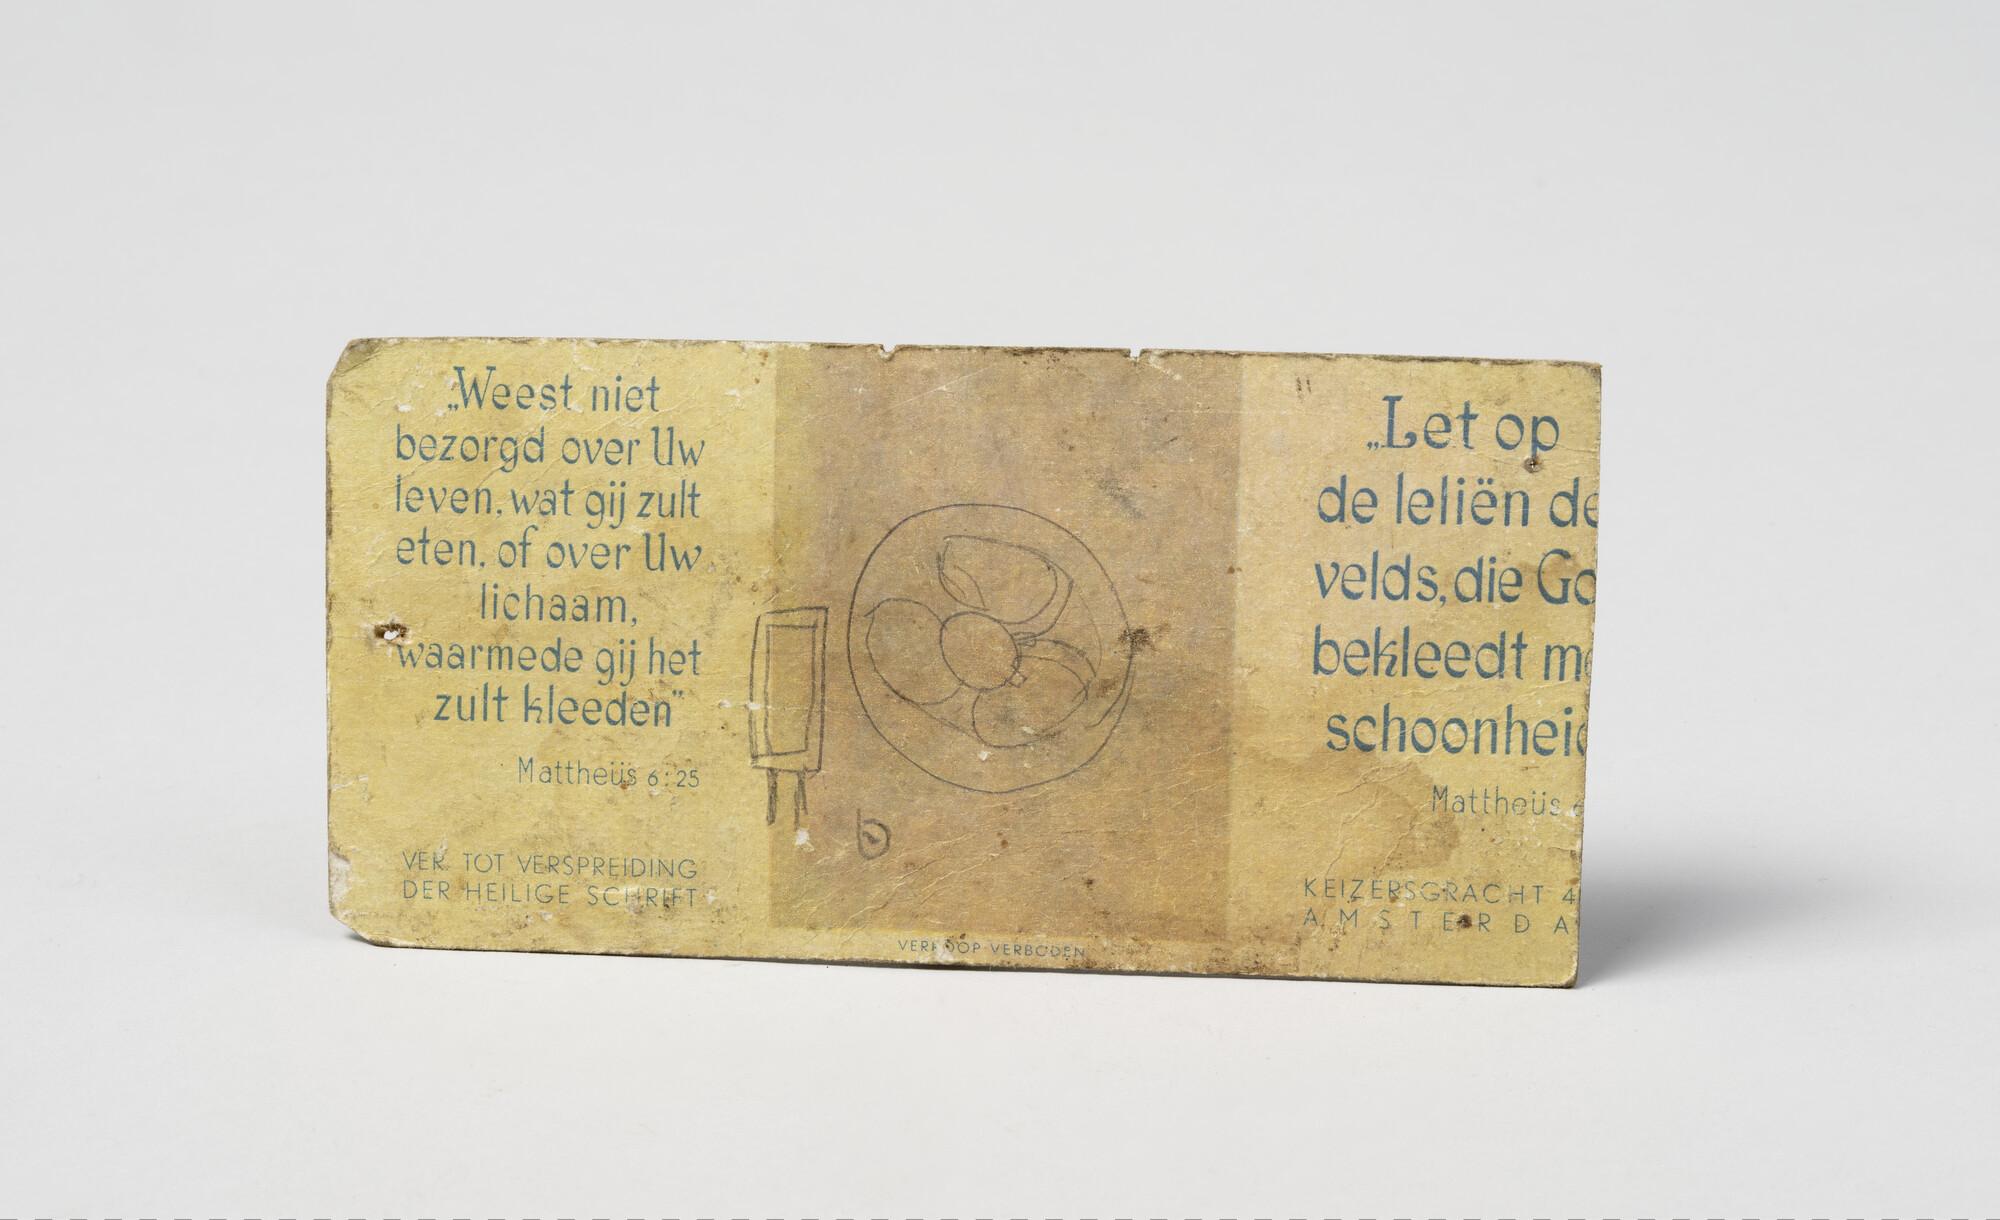 „Weest niet
bezorgd over Uw
leven, wat gij zult
eten, of over Uw
lichaam,
waarmede gij het
zult kleeden”
Mattheüs 6:25
VER. TOT VERSPREIDING
DER HEILIGE SCHRIFT
b
VERKOOP VERBODEN
„Let op
de leliën de
velds, die Go
bekleedt me
schoonheid
Mattheüs 6
KEIZERSGRACHT 4
AMSTERDA